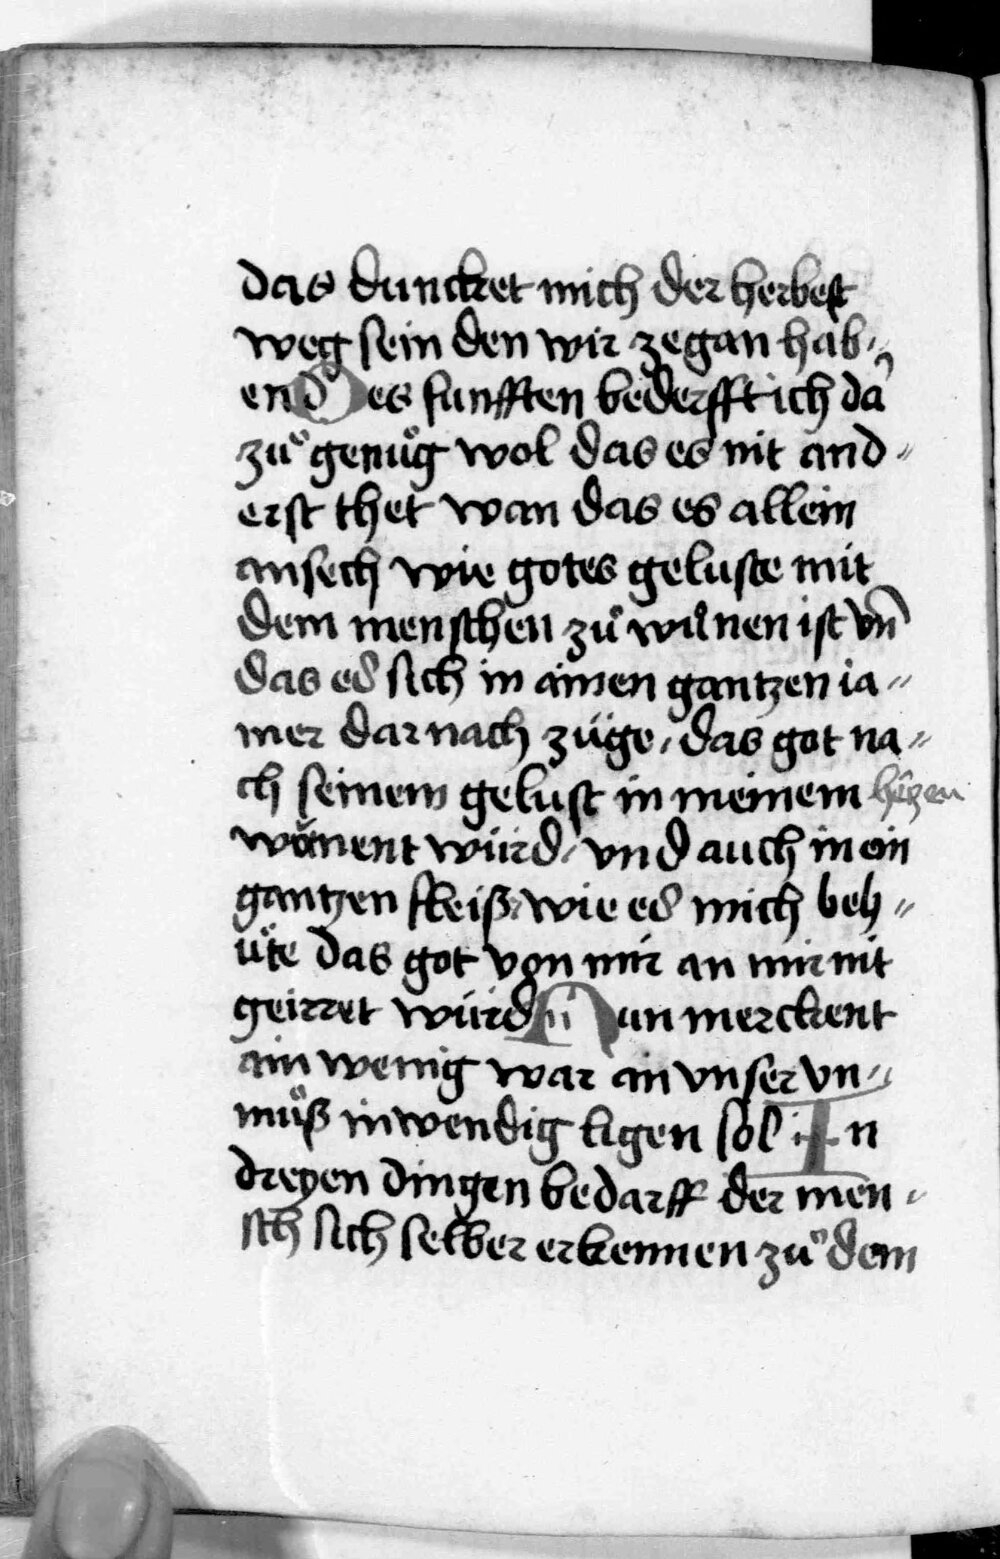 das duncket mich der herbest
weg sein den wir ze gan hab„
en Des funfften bederfft ich da
zuͦ genuͦg wol das es nit and„
erst thet wan das es allein
an sech wie gotes geluste mit
dem menschen zuͦ wonen ist vn̄
das es sich in ainen gantzen ia„
mer dar nach züge, das got na„
ch seinem gelust in meinem
wonent würd, vnd auch in ein
gantzen fleiß, wie es mich beh„
uͤte das got von mir an mir nit
geirret würd Nun merckent
ain wenig war an vnser vn„
muͦß inwendig ligen sol In
dreyen dingen bedarff der men„
sch sich selber erkennen zuͦ dem